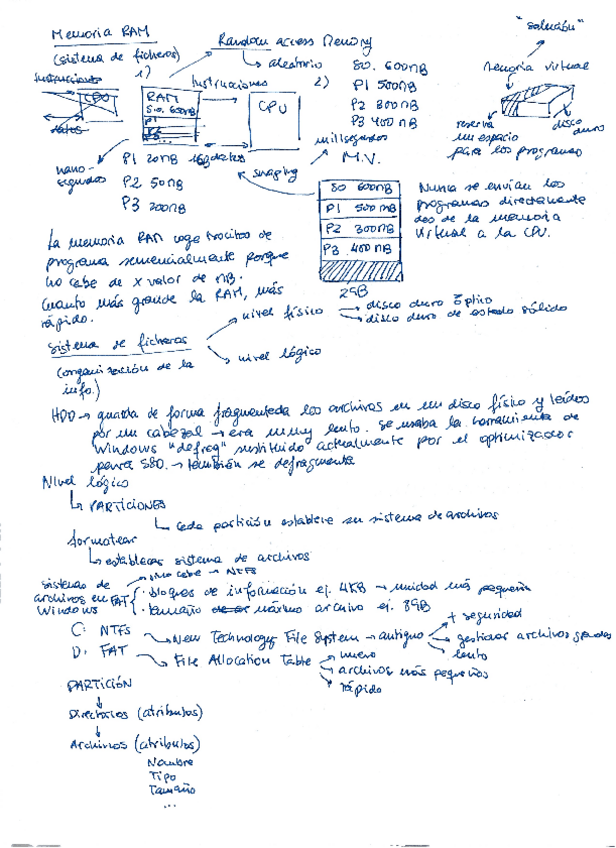 Memoria RAM
(sistema de ficheros)
Random access Memory
↳ aleatorio
"solución"
memoria virtual
reserva
un espacio
para los programas
disco
duro
1)
Instrucciones
CPU
datos
RAM
S.O. 600MB
P1
P2
P3
Instrucciones
CPU
datos
nano-
segundos
P1 20MB
P2 50MB
P3 200MB
2)
SO. 600MB
P1 500MB
P2 300MB
P3 400MB
milisegundos
M.V.
swaping
SO 600MB
P1 500MB
P2 300MB
P3 400MB
2GB
Nunca se envían los
programas directamente
des de la memoria
virtual a la CPU.
La memoria RAM coge trocitos de
programa semencialmente porque
no cabe de x valor de MB.
Cuanto más grande la RAM, más
rápido.
Sistema de ficheros
(organización de la
info.)
nivel físico
disco duro óptico
disco duro de estado sólido
nivel lógico
HDD → guarda de forma fragmentada los archivos en un disco físico y leídos
por un cabezal → era muy lento. Se usaba la herramienta de
Windows "defreg" sustituido actualmente por el optimizador
para SSD. → también se defragmenta
Nivel lógico
↳ PARTICIONES
↳ Cada partición establece su sistema de archivos
formatear
↳ establecer sistema de archivos
sistemas de
archivos en
Windows
FAT
no cabe → NTFS
· bloques de información ej. 4KB → unidad más pequeña
· tamaño máximo archivo ej. 8GB
C: NTFS → New Technology File System → antiguo
+ seguridad
gestionar archivos grandes
lento
D: FAT → File Allocation Table
nuevo
archivos más pequeños
rápido
PARTICIÓN
↓
Directorios (atributos)
↓
Archivos (atributos)
Nombre
Tipo
Tamaño
...